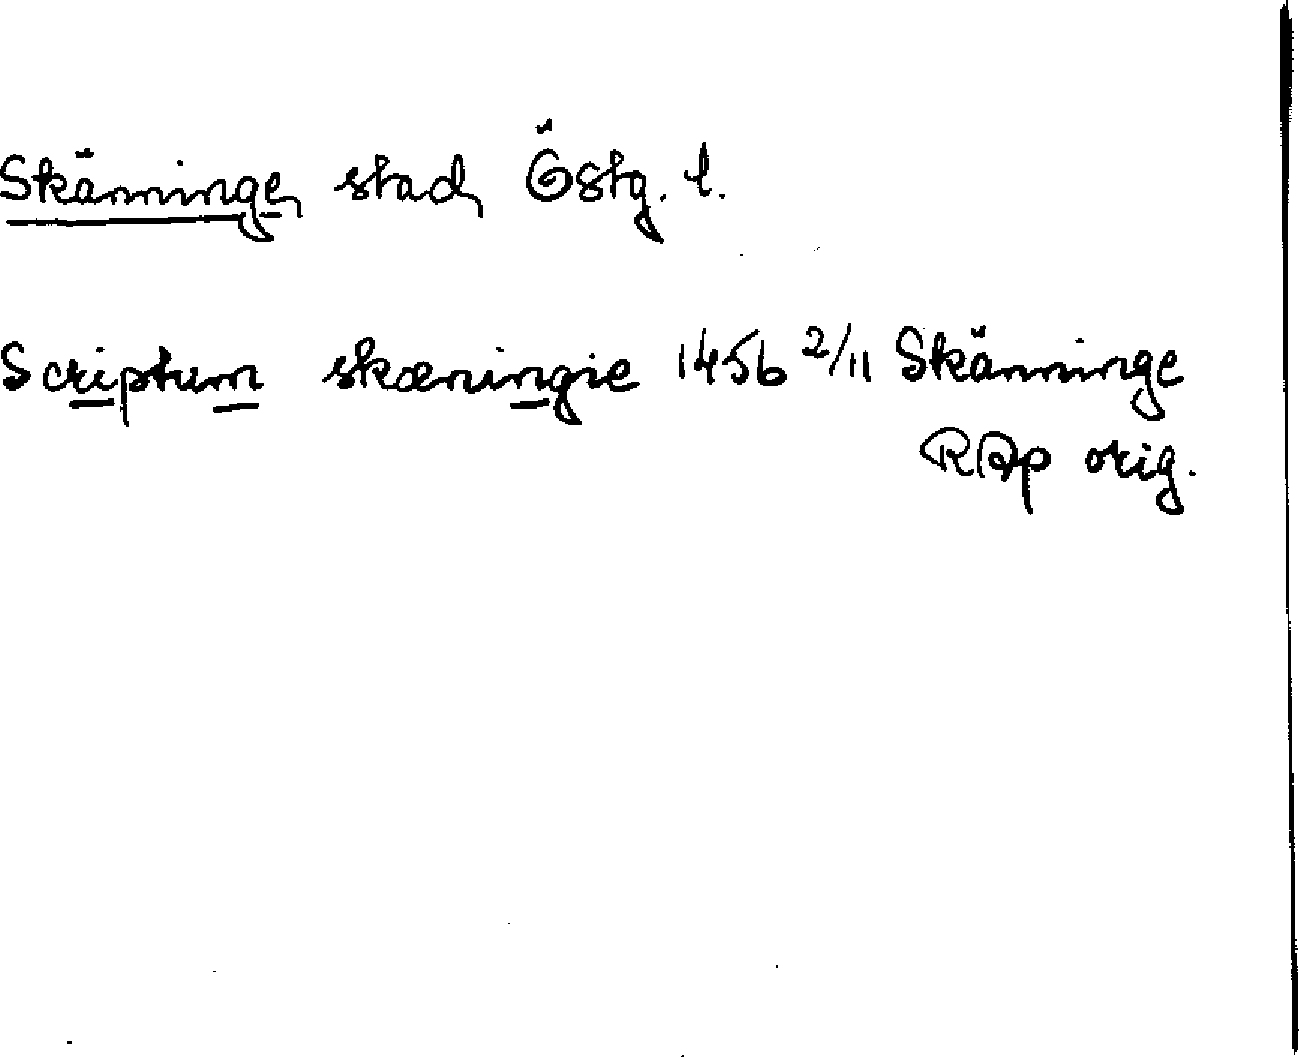 Skänninge, stad, Östg. l.
Scriptum skæningie 1456 2/11 Skänninge
RAp orig.